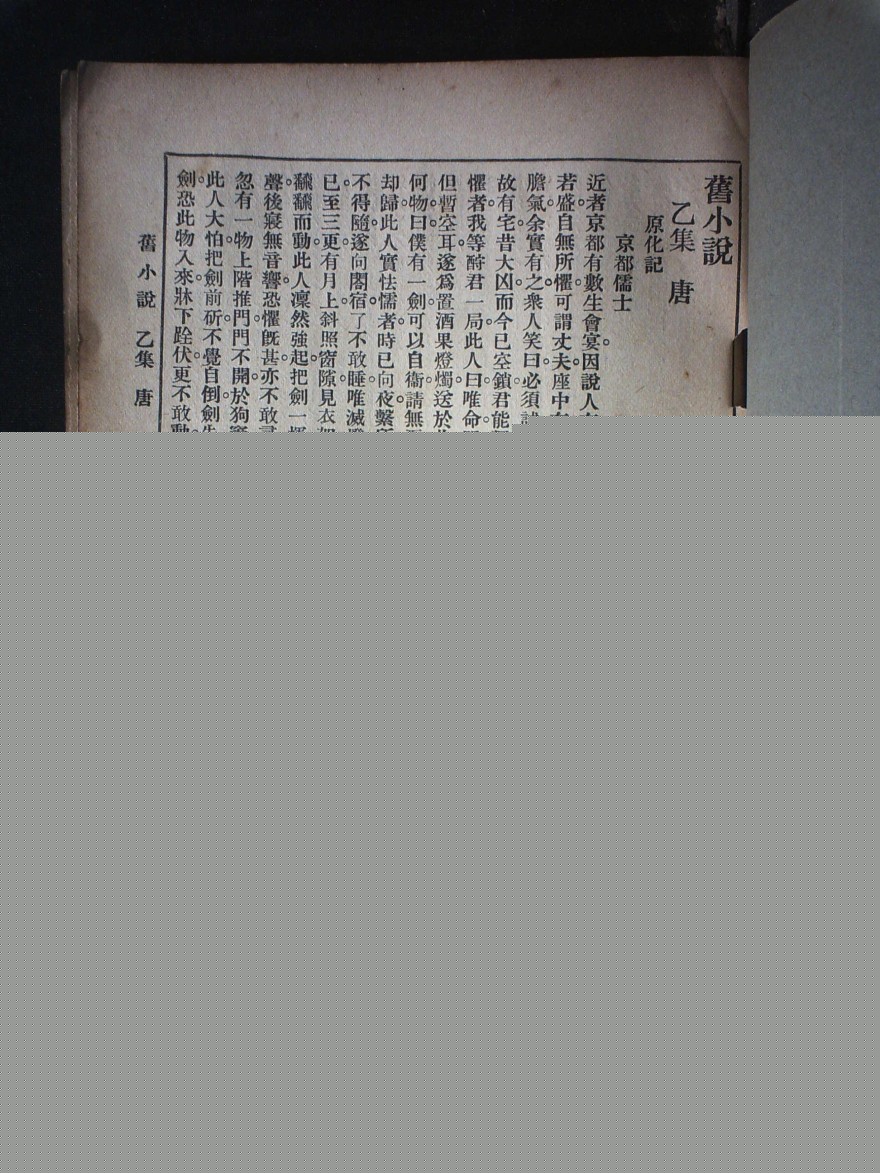 舊小說
乙集 唐
原化記
京都儒士
近者京都有數生會宴。因說人
若盛。自無所懼。可謂丈夫。座中
膽氣。余實有之。衆人笑曰。必須
故有宅。昔大凶。而今已空鎖。君能
懼者。我等酹君一局。此人曰。唯命。
但暫空耳。遂爲置酒果燈燭。送於
何物。曰。僕有一劍。可以自衞。請無
却歸。此人實怯懦者。時已向夜。繫
不得隨。遂向閣宿。了不敢睡。唯滅
已至三更。有月上。斜照窗隙。見衣
飜飜而動。此人凜然強起。把劍一
聲。後寢無音響。恐懼旣甚。亦不敢
忽有一物。上階推門。門不開。於狗
此人大怕。把劍前斫。不覺自倒。劍失
劍。恐此物入來。牀下跧伏。更不敢動
舊小說 乙集 唐